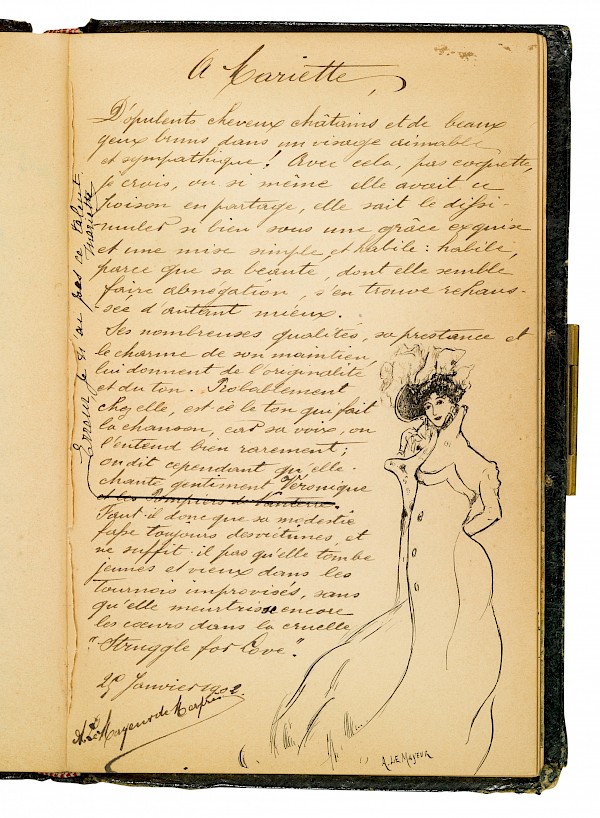 A Mariette,
D'opulents cheveux châtains et de beaux
yeux bruns dans un visage aimable
et sympathique ! Avec cela, pas coquette,
je crois, ou si même elle avait ce
poison en partage, elle sait le dissi
muler si bien sous une grâce exquise
et une mise simple et habile : habile,
parce que sa beauté, dont elle semble
faire abnégation, s'en trouve rehaus-
sée d'autant mieux.
Ses nombreuses qualités, sa prestance et
le charme de son maintien,
lui donnent de l'originalité
et du ton. Probablement
chez elle, est-ce le ton qui fait
la chanson, car sa voix, on
l'entend bien rarement ;
on dit cependant qu'elle
chante gentiment Véronique
et les Pompiers de Nanterre.
Faut-il donc que sa modestie
fasse toujours des victimes, et
ne suffit-il pas qu'elle tombe
jeunes et vieux dans les
tournois improvisés, sans
qu'elle meurtrisse encore
les cœurs dans la cruelle
"Struggle for Love".
Janvier 1902
Le Mayeur de Merprès
Erreur je n'ai pas ce talent
Mariette
A. LE MAYEUR